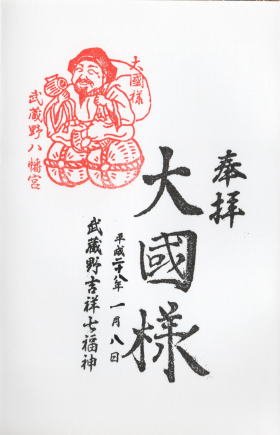 奉拝
大國様
平成二十八年一月八日
武蔵野吉祥七福神
大國様
武蔵野八幡宮